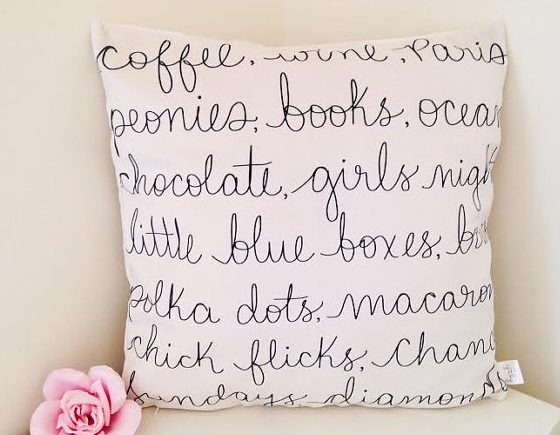 coffee, wine, Paris
peonies, books, ocean
chocolate, girls night
little blue boxes,
polka dots, macaron
chick flicks, Chan
Sundays, diamonds